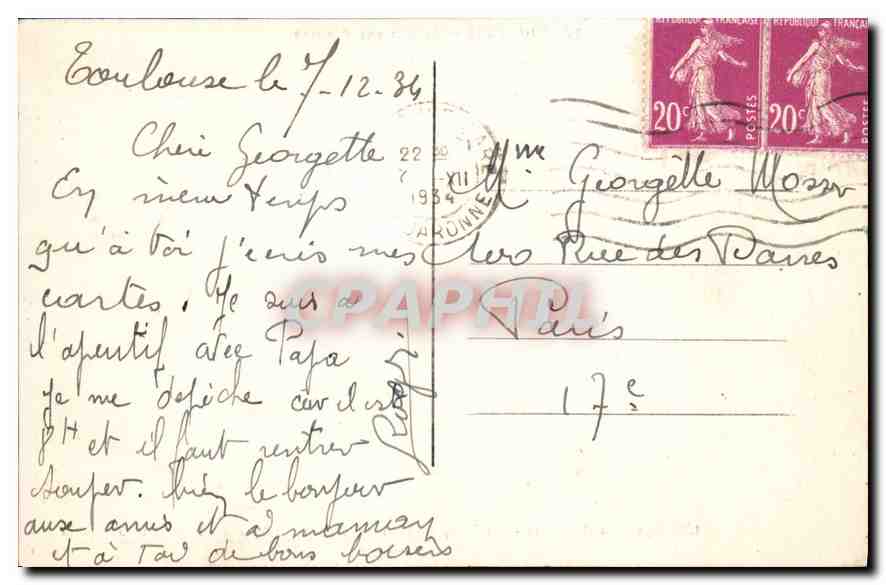 Toulouse le 7-12-34
Cheri Georgette
En meme temps
qu'à toi j'ecris mes
cartes. Je suis a
l'aperitif avec Papa
Je me depèche car il est
8H et il faut rentrer
souper. bien le bonjour
aux amis et a maman
et à toi de bons baisers
Roger
REPUBLIQUE FRANÇAISE
20c POSTES
REPUBLIQUE FRANÇAISE
20c POSTES
22 30
7 -XII
1934
GARONNE
Mme Georgette
Rue des Dames
Paris
17e
CPAPHIL